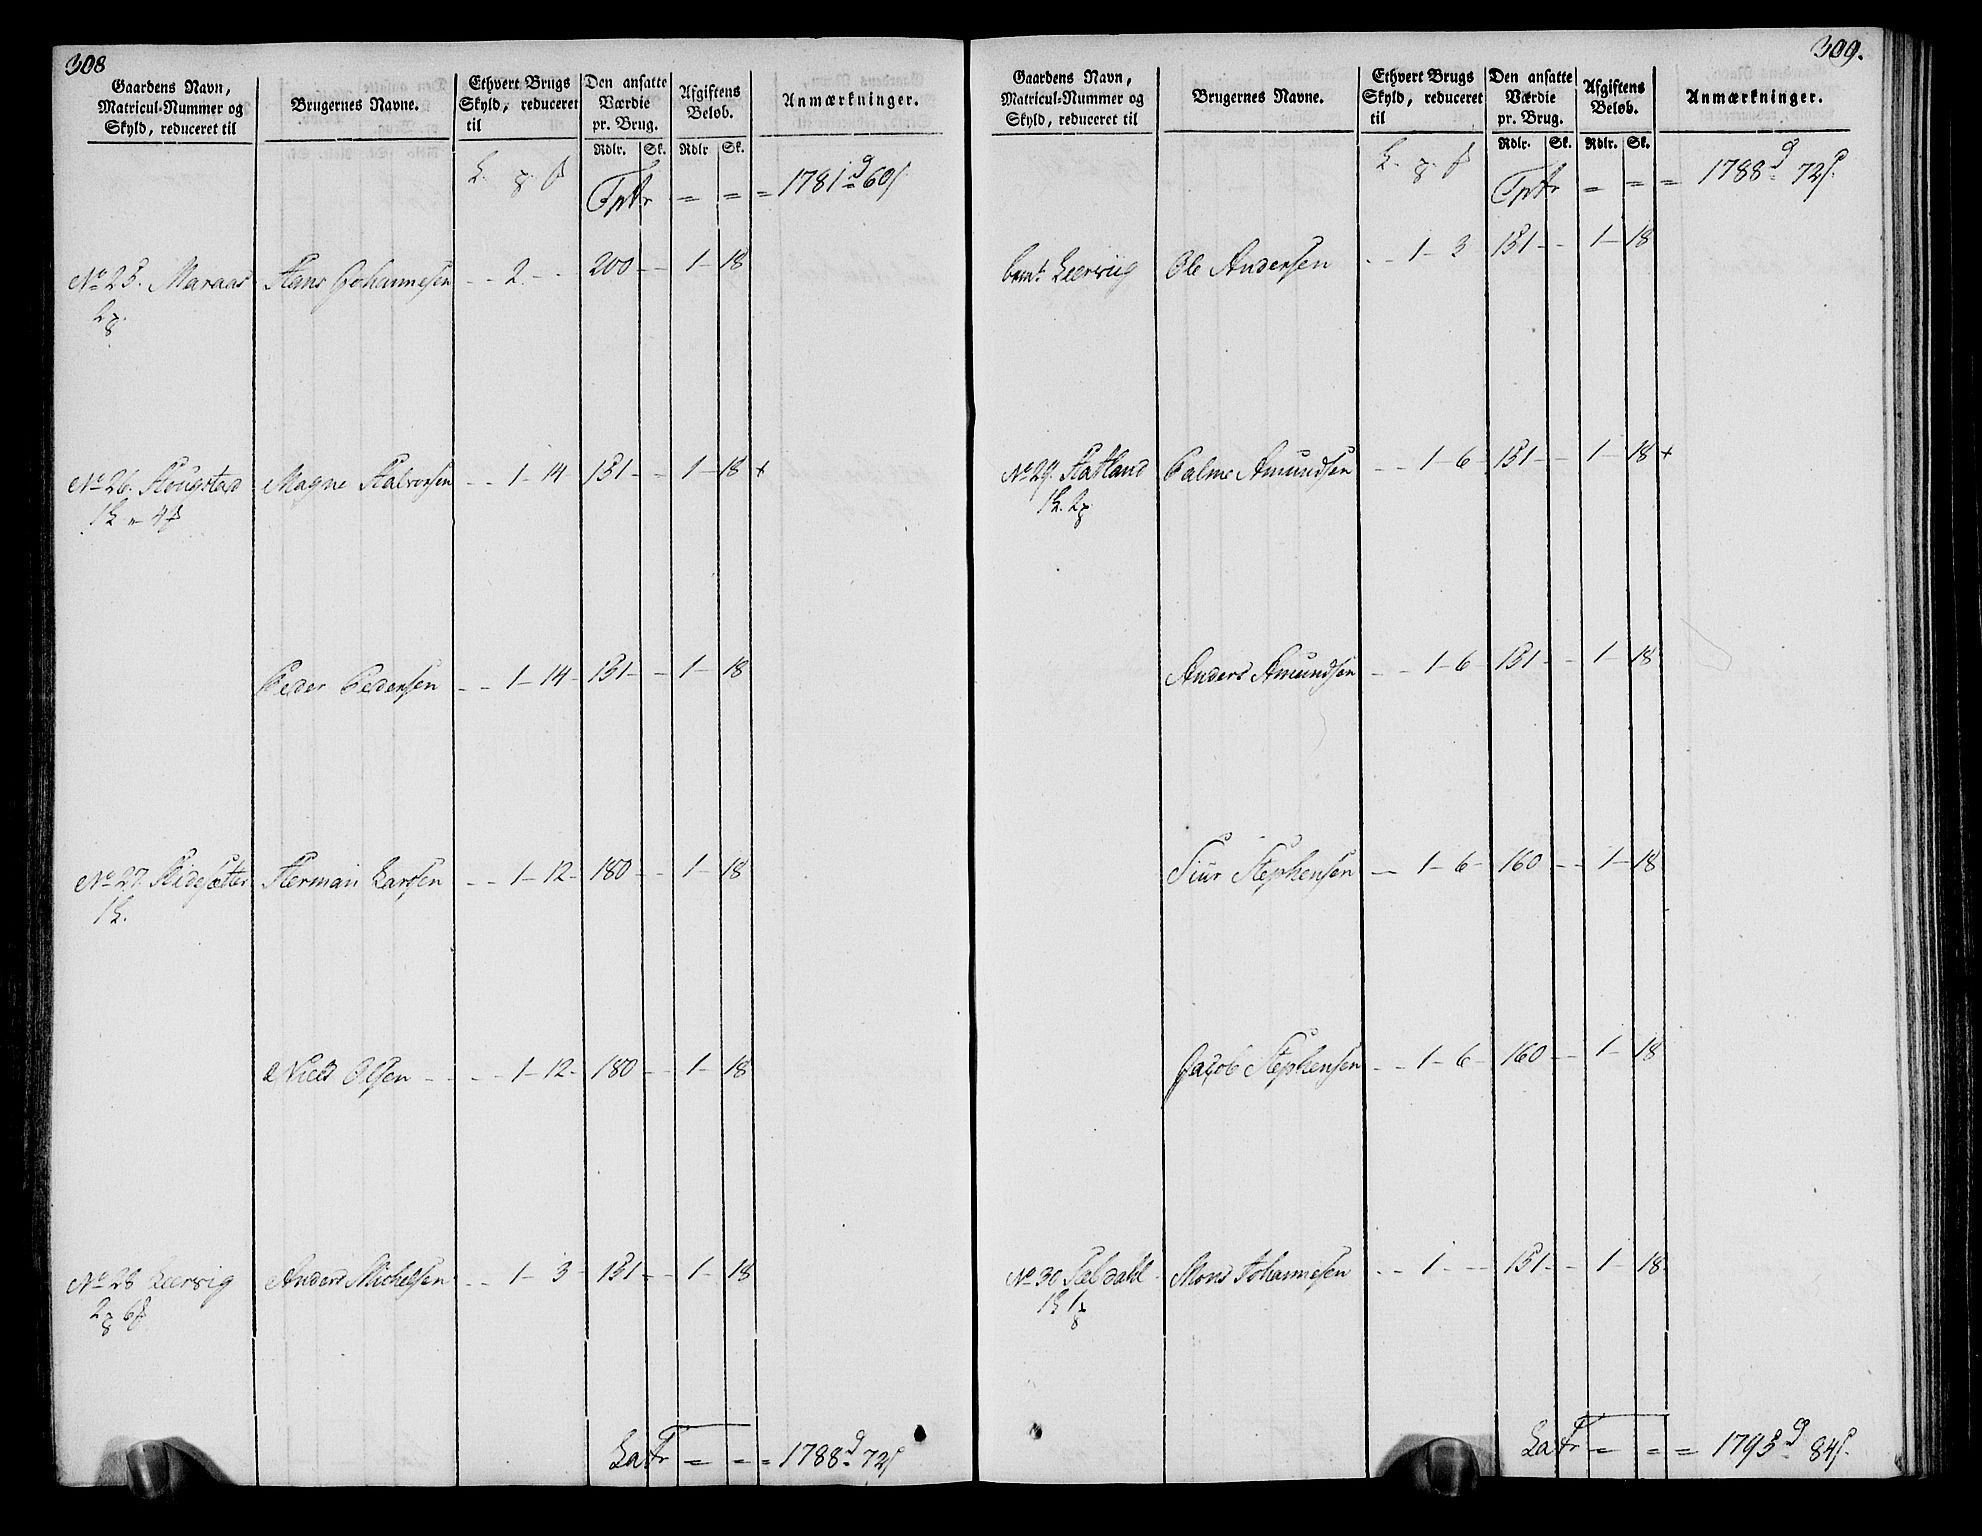 308
Gaardens Navn, Matricul-Nummer og Skyld, reduceret til
Brugernes Navne.
Ethvert Brugs Skyld, reduceret til
Den ansatte Værdie pr. Brug.
Afgiftens Beløb.
Anmærkninger.
Rdlr. Sk. Rdlr Sk.
Tptr = = = 1781 d 60 s
No 25. Maraas Hans Johannesen - - 2 - - 200 - - 1 - 18
No 26. Hougstad Magne Halvorsen - - 1 - 14 151 - - 1 - 18 +
Peder Pedersen - - 1 - 14 - 151 - - 1 - 18
No 27. Hidesætter Herman Larsen - - 1 - 12 - 180 - - 1 - 18
1
Niels Olsen - - - 1 - 12 - 180 - - 1 - 18
No 28 Leervig Anders Michelsen - - 1 - 3 - 151 - - 1 - 18
Latr = = = 1788 d 72 s
309.
Gaardens Navn, Matricul-Nummer og Skyld, reduceret til
Brugernes Navne.
Ethvert Brugs Skyld, reduceret til
Den ansatte Værdie pr. Brug.
Afgiftens Beløb.
Anmærkninger.
Rdlr. Sk. Rdlr. Sk.
Tptr = = = 1788 d 72 s
bemt Leervig Ole Andersen - - 1 - 3 151 - - 1 - 18
No 29. Hatland Palme Amundsen - - 1 - 6 - 151 - - 1 - 18 +
Anders Amundsen - - 1 - 6 - 151 - - 1 - 18
Siur Stephensen - - 1 - 6 - 160 - - 1 - 18
Jacob Stephensen - - 1 - 6 - 160 - - 1 - 18
No 30 Sældahl Mons Johannesen - - 1 - - - 151 - - 1 - 18
Latr = = = 1795 d 84 s